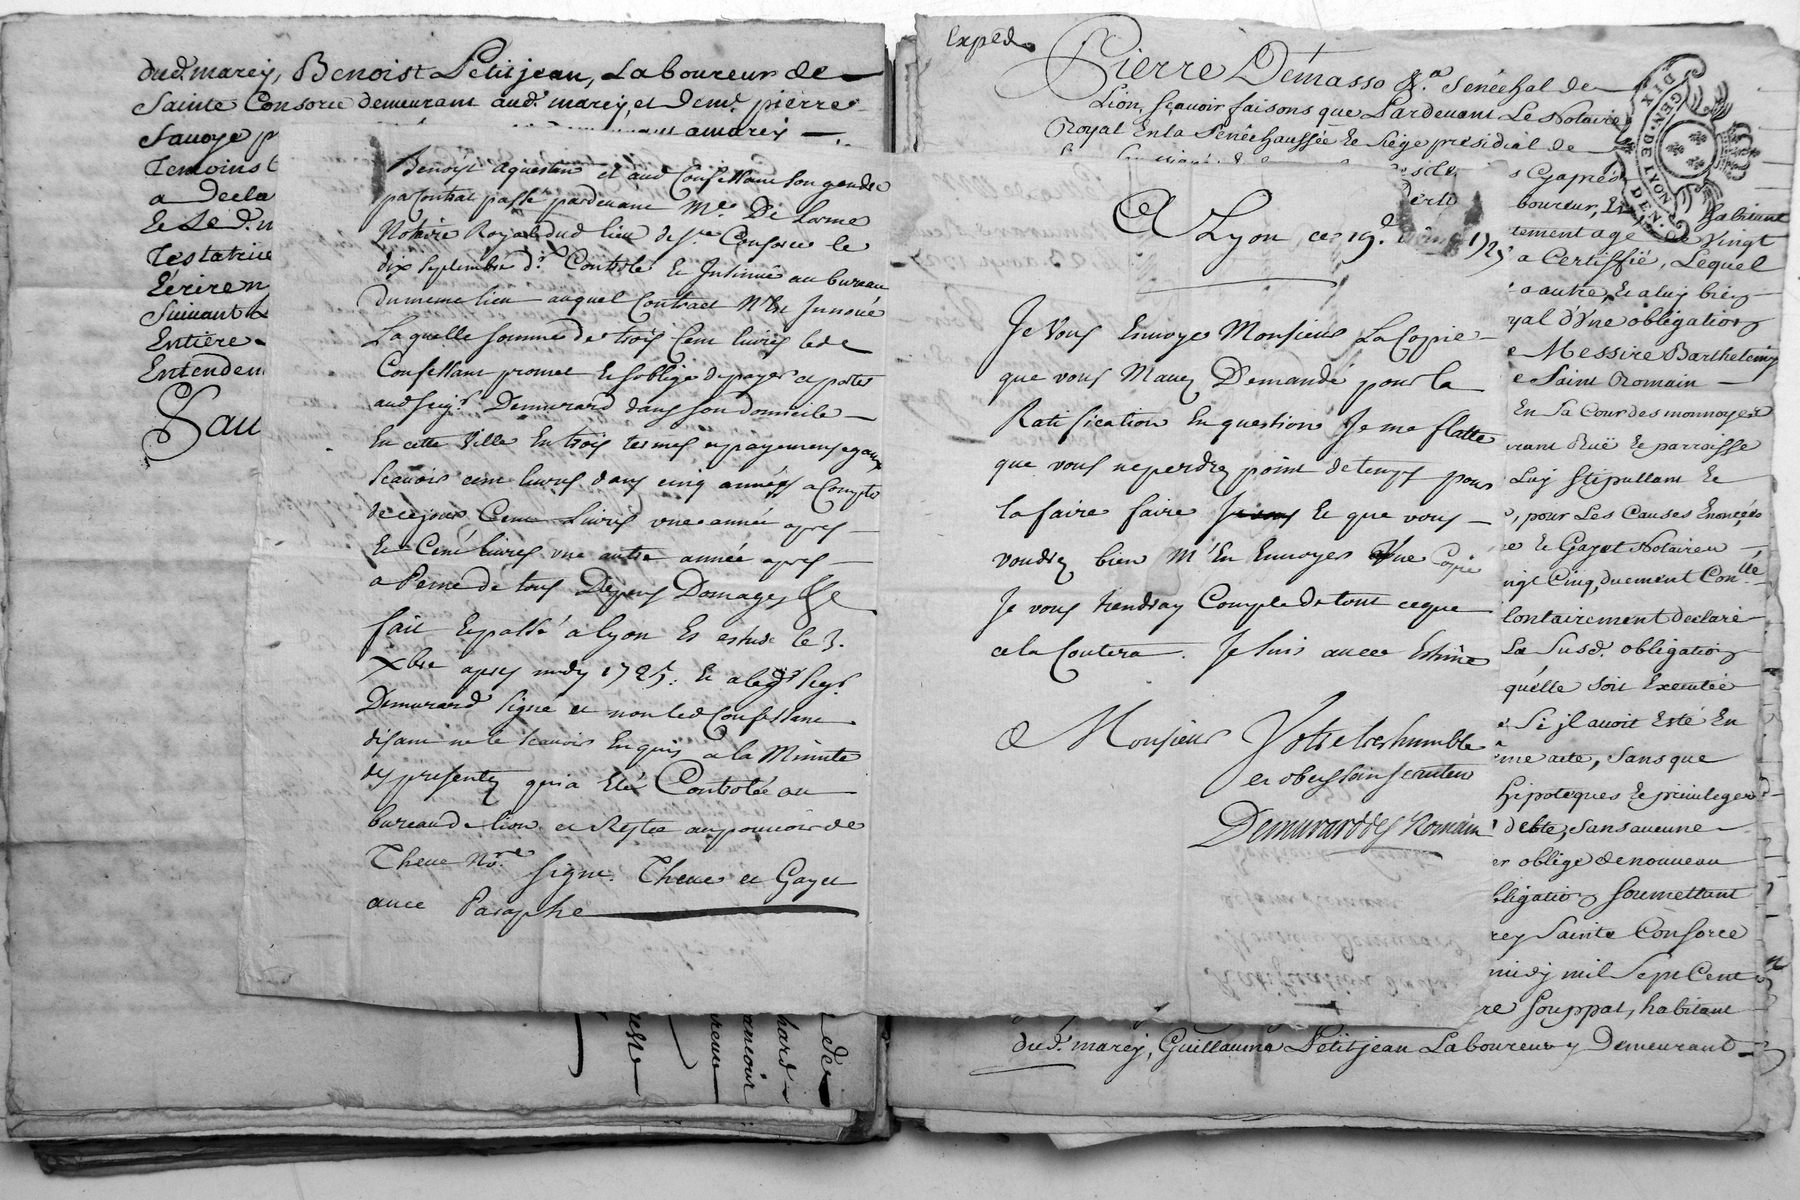 dud. marcy, Benoist Petitjean, Laboureur de
Sainte Consorce demeurant aud. marcy, et Dem.t pierre
Savoye
amarcy
Temoins
a decla
Et Le d.
Testatrice
Ecrire
Suivant
Entiere
Entendem
Sau
Benoist aquesteur et aud Confessant son gendre
pa Contrat passé pardevant Me. De Lorme
Notaire Royal dud lieu de Ste Consorce le
dix septembre d.r Controlé Et Insinué au bureau
dumeme lieu auquel Contract N'Est Innové
Laquelle somme de trois Cent livres led
Confessant promet Et soblige de payer et porter
aud seig.r Demurard dans son domicile
En cette Ville En trois termes et payemens egaux
Scavoir cent livres dans cinq années a Compter
de cejour Cent Livres une année apres
Et Cent livres une autre année apres
a Peine de tous Depens Domages &c
fait Et passé a lyon Es estude le 3.
Xbre apres midy 1725: Et a led. Seg.r
Demurard signé et non led Confessant
disant ne le scavoir Enquis a la Minute
des presentes qui a Eté Controlée au
bureau de lion et Restée au pouvoir de
Theve No.re signé. Theve et Gayet
avec Paraphe
de ce
hard
ancoir
reste
Exped.
Pierre Démasso &.a Sénéchal de
Lion, sçavoir faisons que Pardevant Le Notaire
Royal En la Sénéchaussée Et Siège présidial de
DIX GEN. DE LYON DEN.
s Cyaprés
boureur, habitant
tement agé de Vingt
a Certiffié, Lequel
autre, Et a luy bien
yal d'Vne obligation
e Messire Barthelemy
e Saint Romain
En Sa Cour des monnoyes
rant Ruë Et parroisse
Luy stipullant Et
, pour Les Causes Enoncées
e Et Gayet Notaires
ngt Cinq, duement Con.llé
lontairement declaré
La Susd. obligation
quelle soit Executée
Si jl avoit Esté En
me acte, Sans que
hipoteques Et privileges
debte, Sans aucune
er obligé de nouveau
bligation Soumettant
rcy Sainte Consorce
midy mil Sept Cent
re Souppat, habitant
dud. marcy, Guillaume Petitjean Laboureur y Demeurant
A Lyon, ce 19.e 172
Je Vous Envoye Monsieur La Copie
que vous Mavez Demandé pour la
Ratification En question Je me flatte
que vous ne perdrez point de temps pour
la faire faire Et que vous
voudrez bien M'En Envoyer Vne Copie
Je vous tiendray Compte de tout ce que
cela Coutera. Je suis avec Estime
Monsieur Votre tres humble
et obeyssant serviteur
Demurard de St Romain